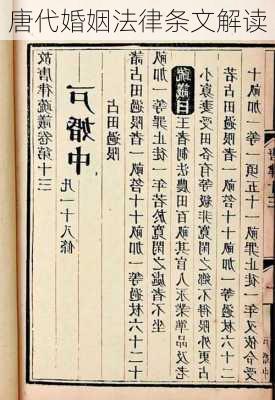 唐代婚姻法律条文解读
故唐律疏議卷第十三
戶婚中
凡一十八條
占田過限
諸占田過限者一畝笞十十畝加一等過杖六十二十
畝加一等罪止徒一年若於寬閑之處者不坐
疏議曰王者制法農田百畝其官人永業準品及老
小寡妻受田各有等級非寬閑之鄉不得限外更占
若占田過限者一畝笞十十畝加一等過杖六十二十
畝加一等一頃五十一畝罪止徒一年又依令受